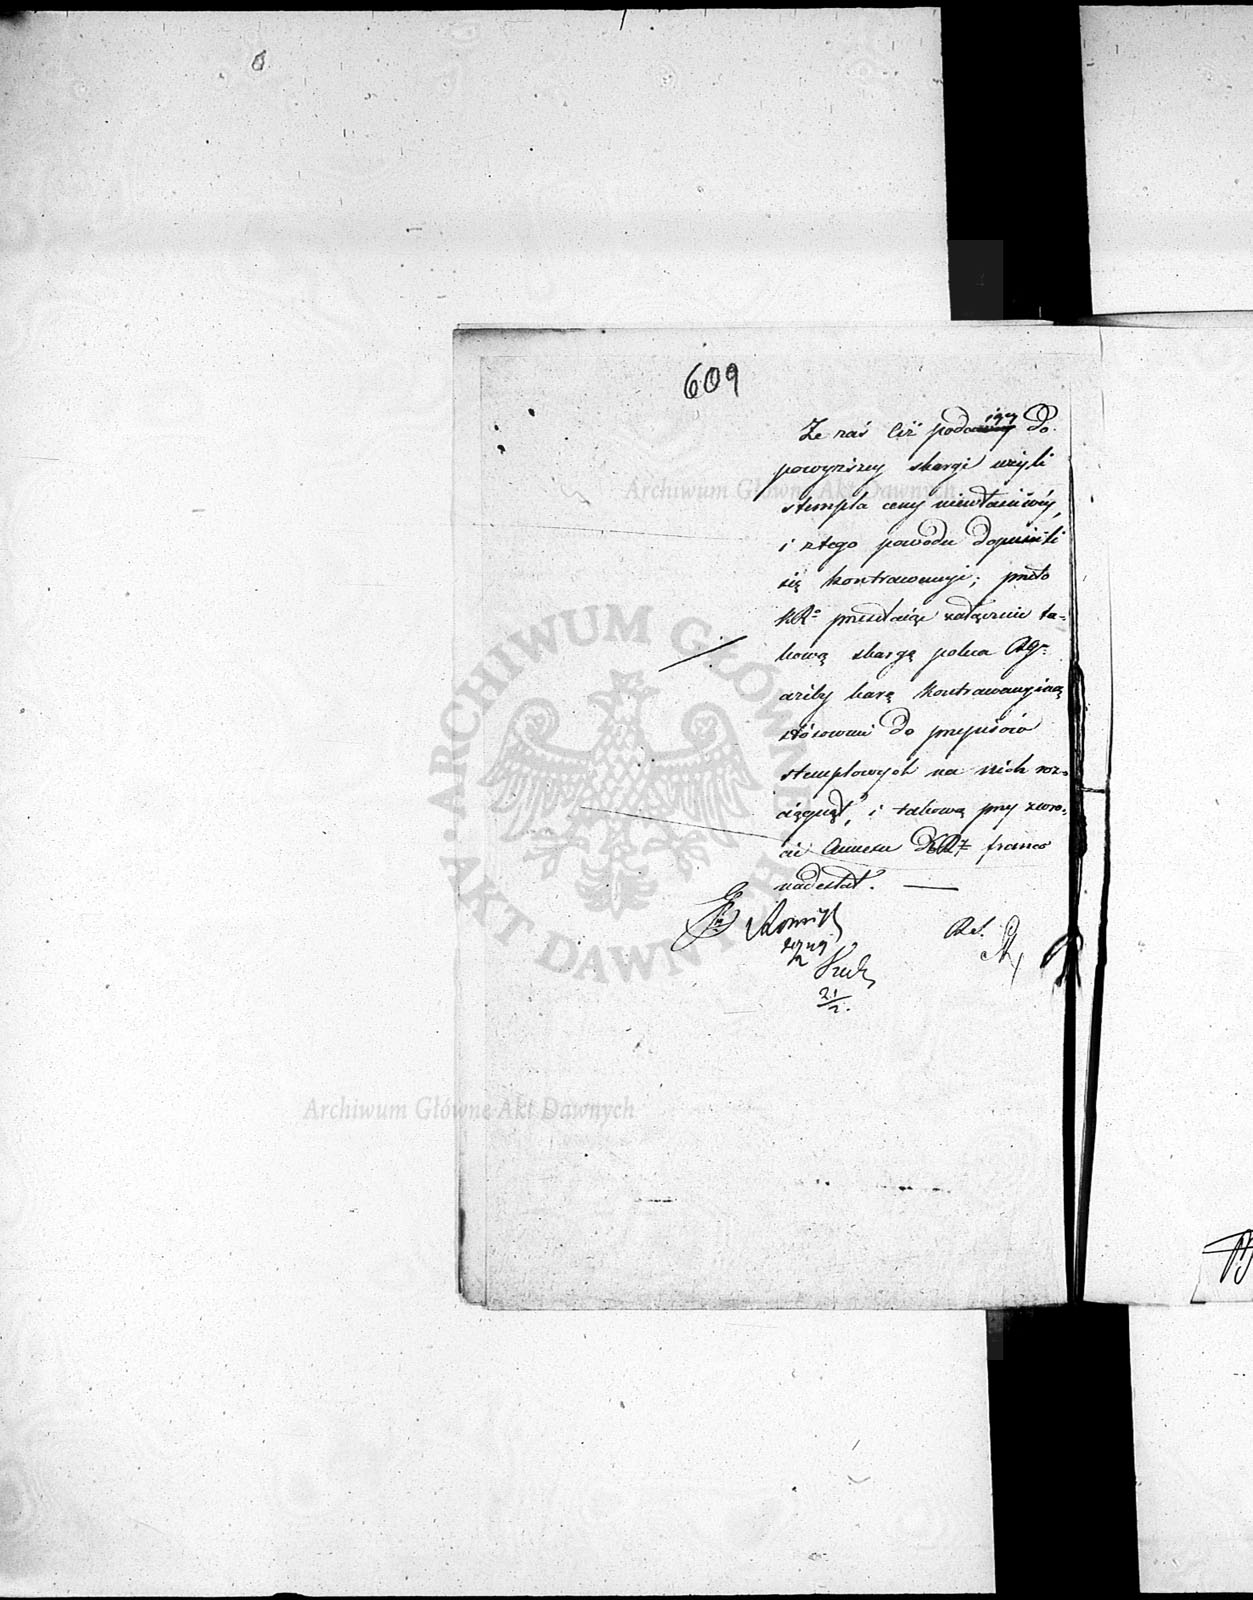 609
Że zaś ciż podaiący do
powyższey skargi użyli
stempla ceny niewłaściwéy,
i ztego powodu dopuścili
się kontrawencyi; przeto
KR przesełaiąc załącznie ta-
kową skargę poleca
ażeby karę kontrawencyiną
stósownie do przepisów
stemplowych na nich roz-
ciągnął, i takową przy zwro-
cie Annexu franco
nadesłał. —
21/2.
Archiwum Główne Akt Dawnych
ARCHIWUM GŁÓWNE AKT DAWNYCH
Archiwum Główne Akt Dawnych